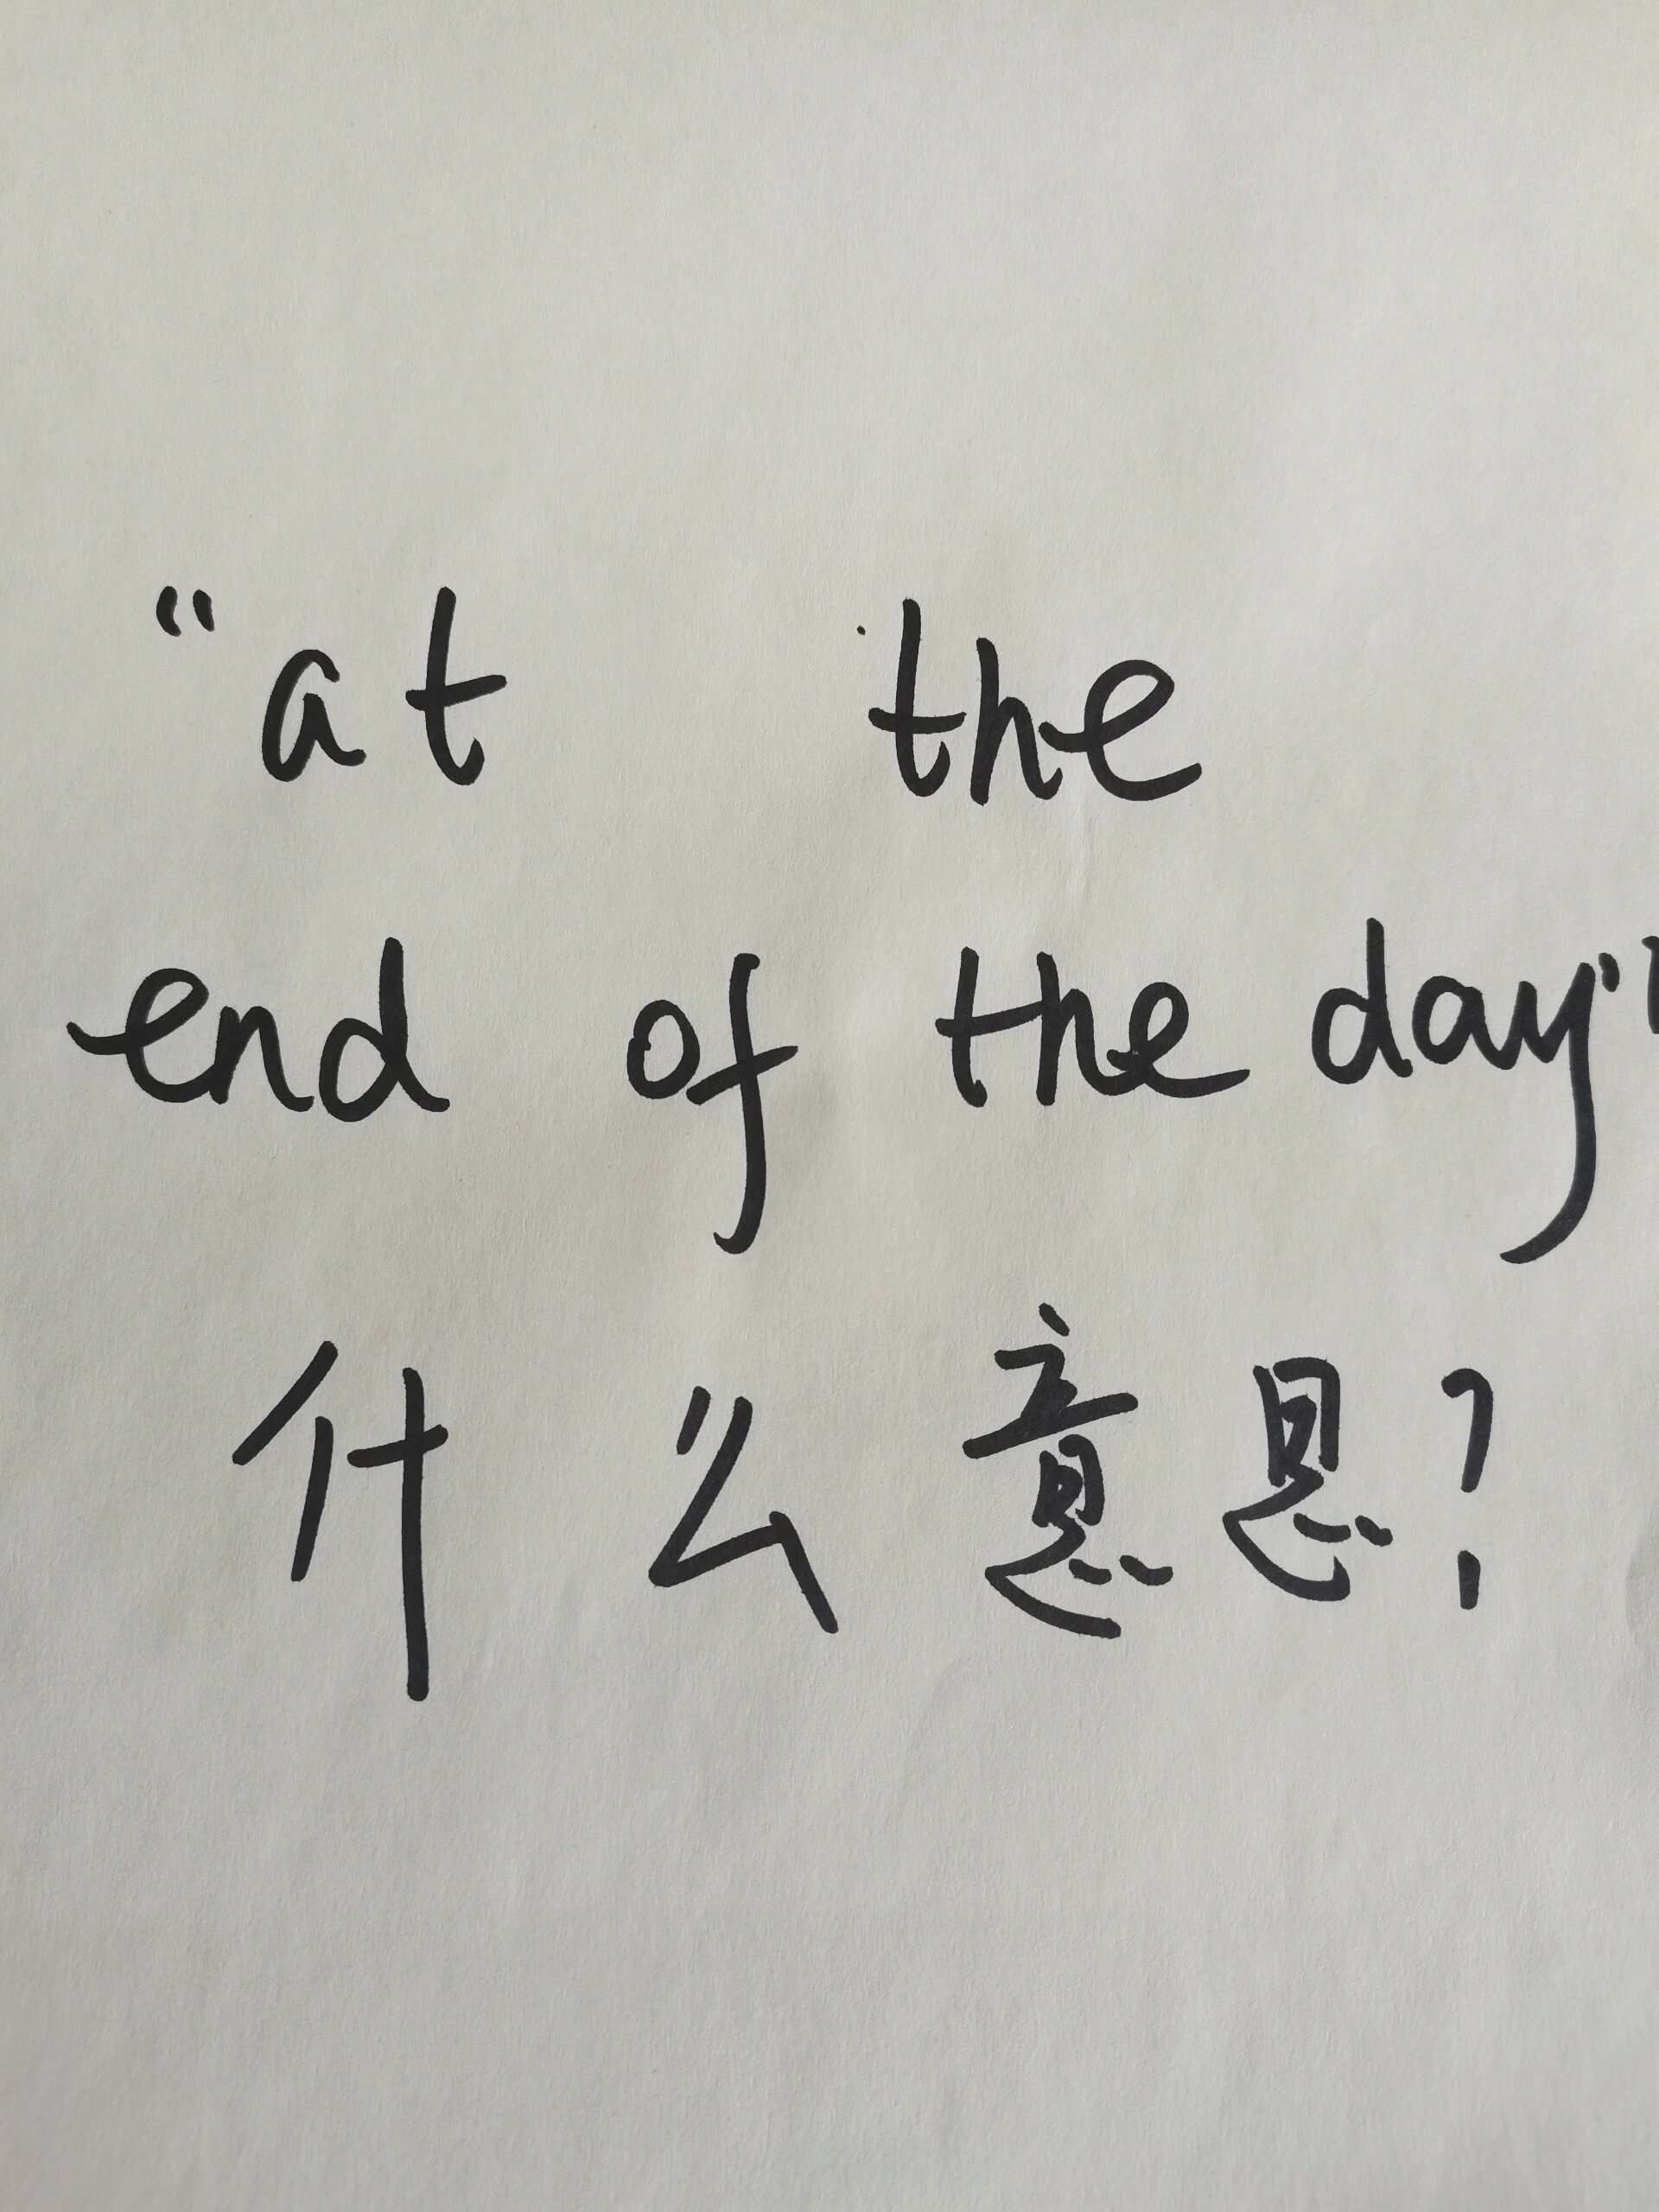 “at the
end of the day”
什么意思?